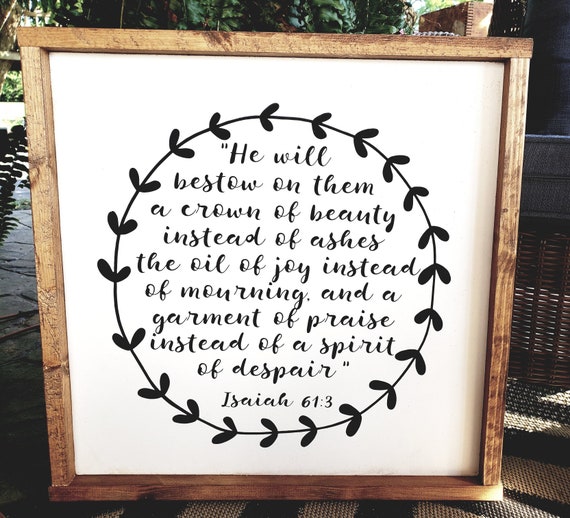 "He will
bestow on them
a crown of beauty
instead of ashes
the oil of joy instead
of mourning, and a
garment of praise
instead of a spirit
of despair"
Isaiah 61:3